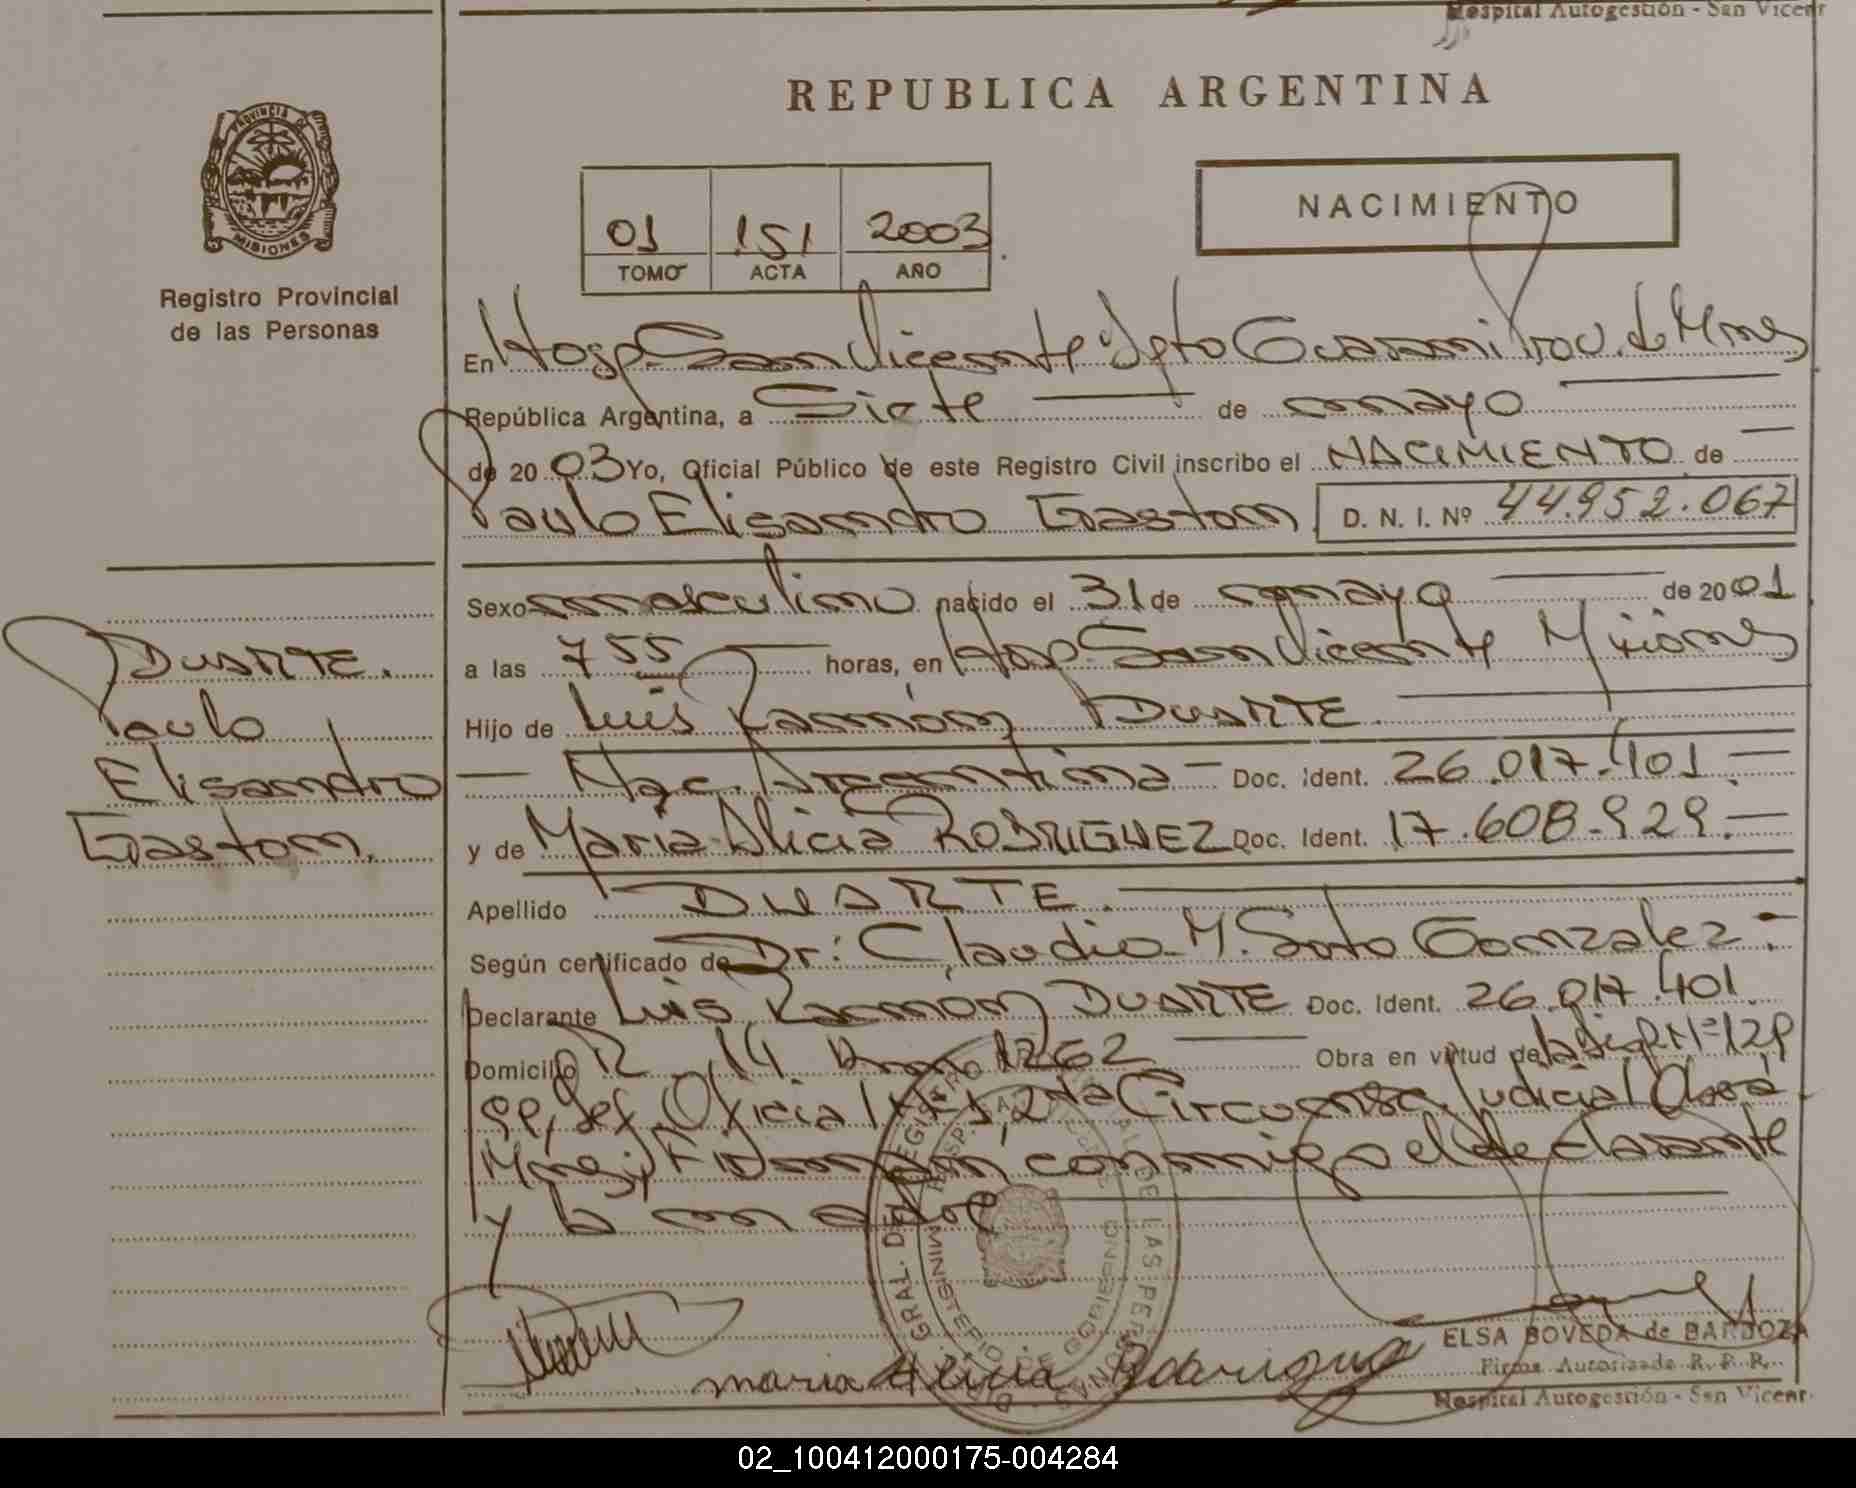 Hospital Autogestión - San Vicent
REPUBLICA ARGENTINA
PROVINCIA DE
MISIONES
Registro Provincial
de las Personas
01 151 2003
TOMO ACTA AÑO
NACIMIENTO
En Hosp. San Vicente Dpto Guaraní Prov. de Mnes
República Argentina, a Siete de mayo
de 2003 Yo, Oficial Público de este Registro Civil inscribo el NACIMIENTO de
Paulo Elisandro Gaston D. N. I. Nº 44.952.067
Sexo masculino nacido el 31 de mayo de 2001
a las 7 55 horas, en Hosp. San Vicente Misiones
Hijo de Luis Ramón DUARTE.
Nac. Argentina - Doc. Ident. 26.017.401.-
y de María Alicia RODRIGUEZ Doc. Ident. 17.608.929.-
Apellido DUARTE.
Según certificado de Dr: Claudio M. Soto Gonzalez.-
Declarante Luis Ramón DUARTE Doc. Ident. 26.017.401
Domicilio R. 14. Km 1262 Obra en virtud de la Nº 129
Oficial Nº 1, 2da Circunsc. Judicial Oberá
Mnes; Firman conmigo el declarante
y la madre
DUARTE.
Paulo
Elisandro
Gaston.
GRAL. DEL REGISTRO DE LAS PERSONAS
MINISTERIO DE GOBIERNO
maria Alicia Rodriguez
ELSA BOVEDA de BARBOZA
Firma Autorizada R. P. P.
Hospital Autogestión - San Vicent
02_100412000175-004284